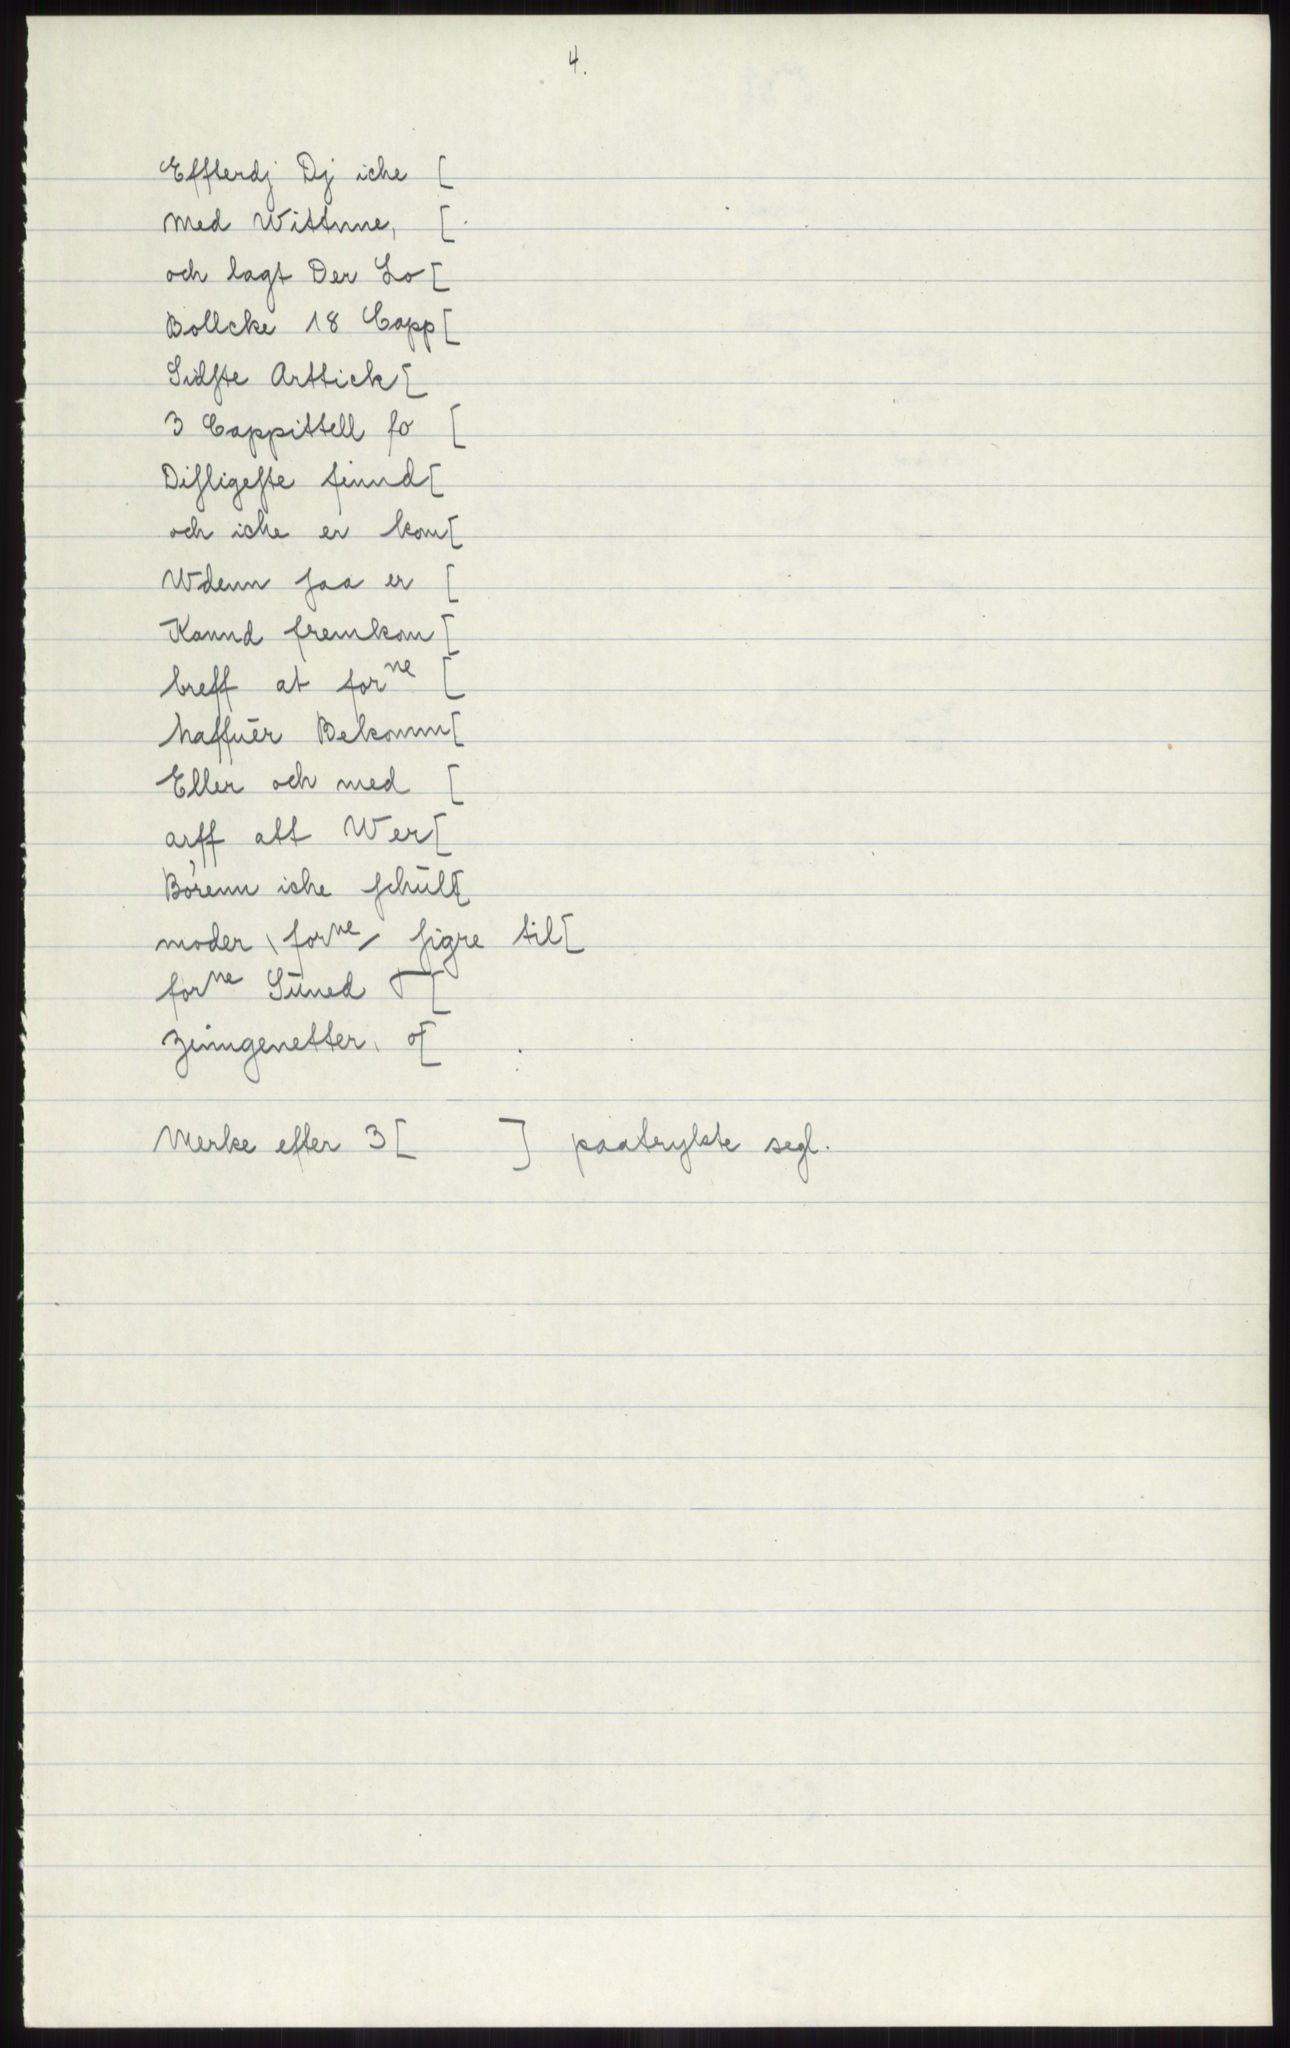 4.
Effterdj Dj iche [
med Wittnne, [
och lagt Der Lo[
Bollcke 18 Capp[
Sidſte Arttick[
3 Cappittell ſo [
Diſligeſte finnd[
och iche er kom[
Wdenn ſaa er [
Kannd fremkom[
breff at forne [
haffuer Bekomm[
Eller och med [
arff att Wer[
Börenn iche ſchüll[
moder \ forne / ſigre til[
forne Süned [
Zimngenetter, of[
Merke efter 3 [ ] paatrykte segl.